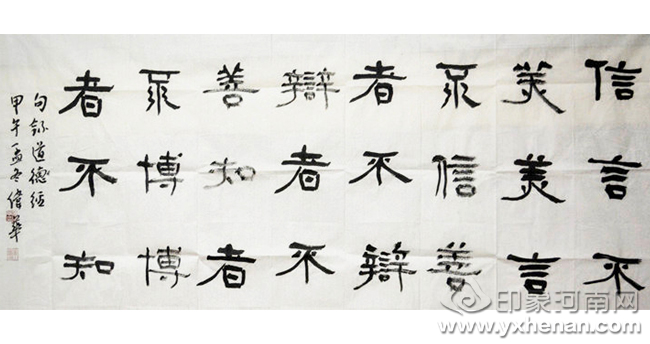 信言不
美美言
不信善
者不辯
辯者不
善知者
不博博
者不知
句錄道德經
甲午孟冬偉華
印象河南网
www.yxhenan.com